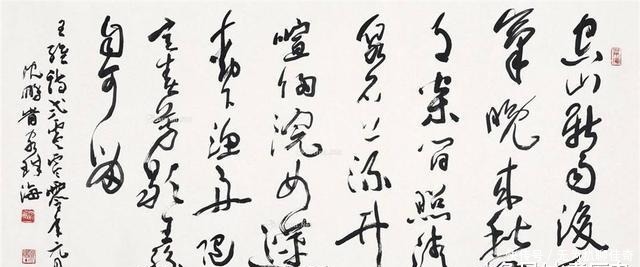 空山新雨後
氣晚來秋
月松間照清
泉石上流竹
喧歸浣女蓮
動下漁舟隨
意春芳歇王孫
自可留
王維詩弍零零零年元月
沈鵬書珠海